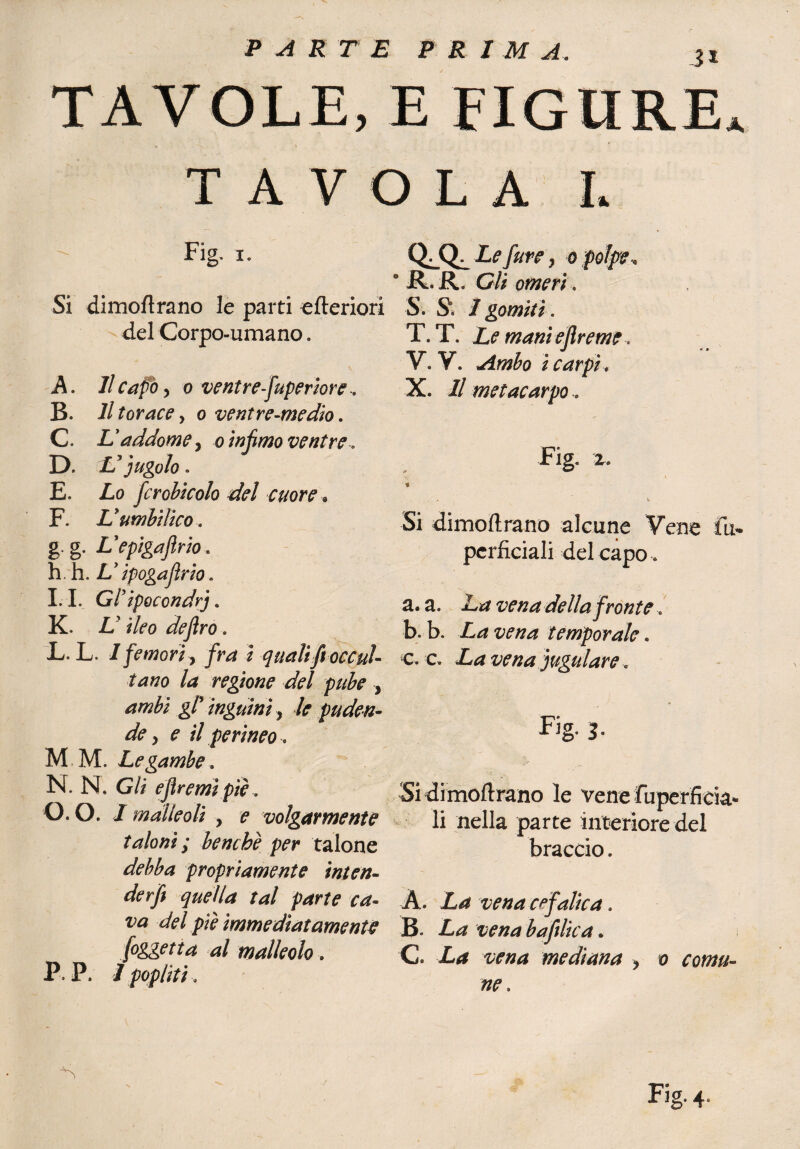 PARTE PRIMA. 31
TAVOLE, E FIGURE.
TAVOLA I.
Fig. 1.
Si dimoſtrano le parti eſteriori
del Corpo-umano.
A. Il capo, o ventre-ſuperiore.
B. Il torace, o ventre-medio.
C. L'addome, o infimo ventre.
D. L'jugolo.
E. Lo ſcrobicolo del cuore.
F. L'umbilico.
g. g. L'epigaſtrio.
h. h. L'ipogaſtrio.
I. I. Gl'ipocondrj.
K. L'ileo deſtro.
L. L. I femori, fra i quali ſi occul-
tano la regione del pube,
ambi gl'inguini, le puden-
de, e il perineo.
M. M. Le gambe.
N. N. Gli eſtremi piè.
O. O. I malleoli, e volgarmente
taloni; benchè per talone
debba propriamente inten-
derſi quella tal parte ca-
va del piè immediatamente
ſoggetta al malleolo.
P. P. I popliti.
Q. Q. Le ſure, o polpe.
R. R. Gli omeri.
S. S. I gomiti.
T. T. Le mani eſtreme.
V. V. Ambo i carpi.
X. Il metacarpo.
Fig. 2.
Si dimoſtrano alcune Vene ſu-
perficiali del capo.
a. a. La vena della fronte.
b. b. La vena temporale.
c. c. La vena jugulare.
Fig. 3.
Si dimoſtrano le vene ſuperficia-
li nella parte interiore del
braccio.
A. La vena cefalica.
B. La vena baſilica.
C. La vena mediana, o comu-
ne.
Fig. 4.